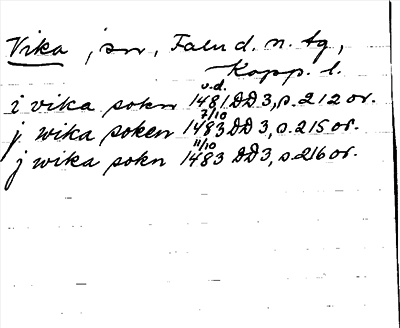 Vika, sn, Falu d. n. tg,
Kopp. l.
u.d.
i vika sokn 1481 DD 3, s. 212 or.
7/10
j wika soken 1483 DD 3, s. 215 or.
11/10
j wika sokn 1483 DD 3, s. 216 or.